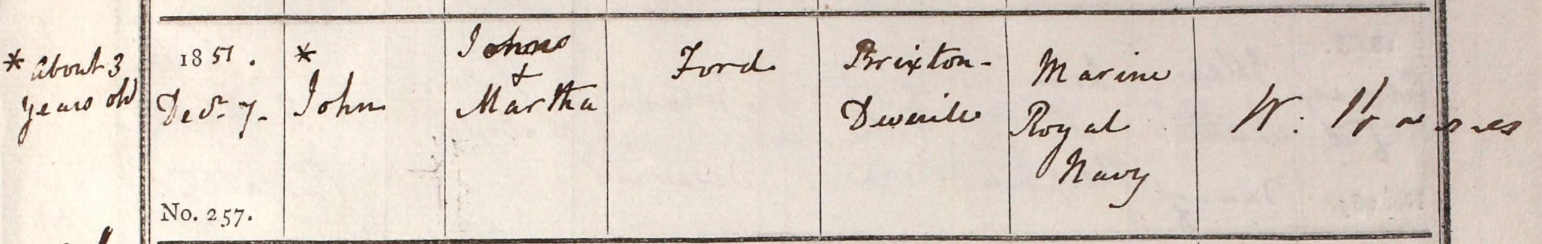 * About 3
years old
1851.
Decr. 7.
No. 257.
*
John
John
&
Martha
Ford
Brixton-
Deverile
Marine
Royal
Navy
W.